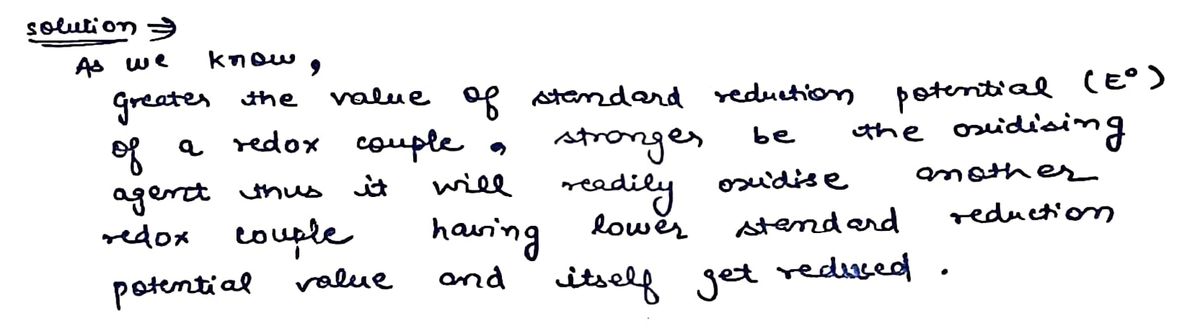 solution ⇒
As we know,
greater the value of standard reduction potential (E°)
of a redox couple, stronger be the oxidising
agent thus it will readily oxidise another
redox couple having lower standard reduction
potential value and itself get reduced.